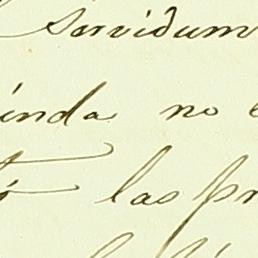 Servidum
inda no e
ó las pr